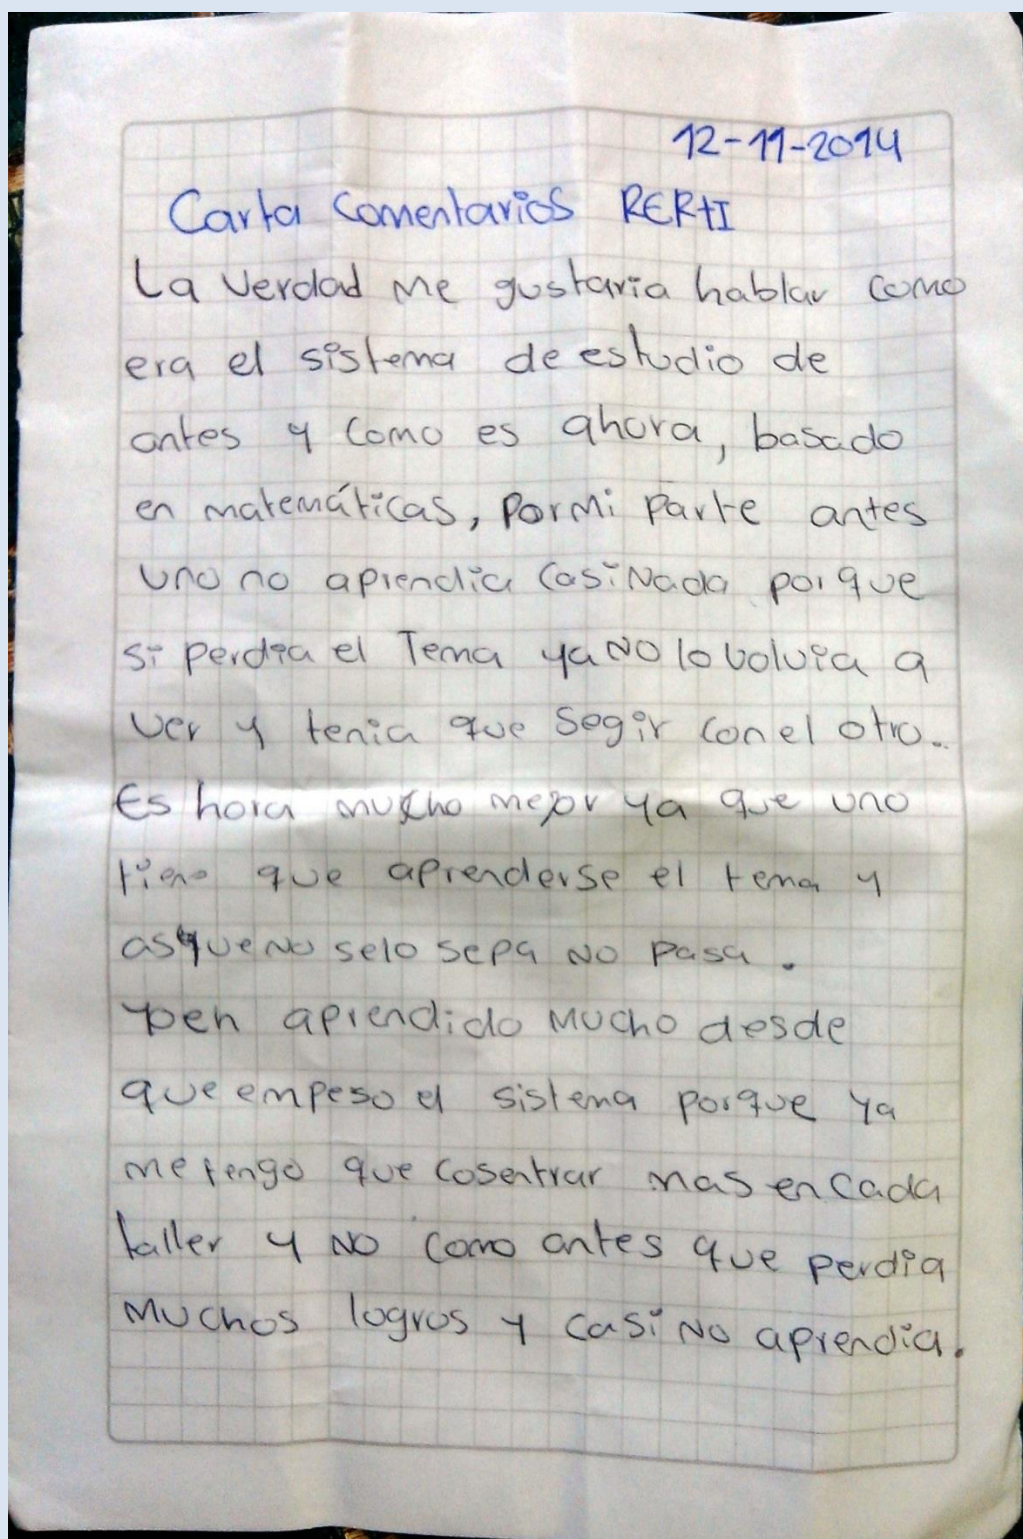 12-11-2014
Carta Comentarios RERtI
La verdad me gustaria hablar como
era el sistema de estudio de
antes y como es ahora, basado
en matemáticas, por mi parte antes
uno no aprendia casi nada porque
si perdia el Tema ya no lo volvia a
ver y tenia que segir con el otro..
Es hora mucho mejor ya que uno
tiene que aprenderse el tema y
asta que no selo sepa no pasa.
aprendido mucho desde
que empeso el sistema porque ya
me tengo que cosentrar mas en cada
taller y no como antes que perdia
muchos logros y casi no aprendia.